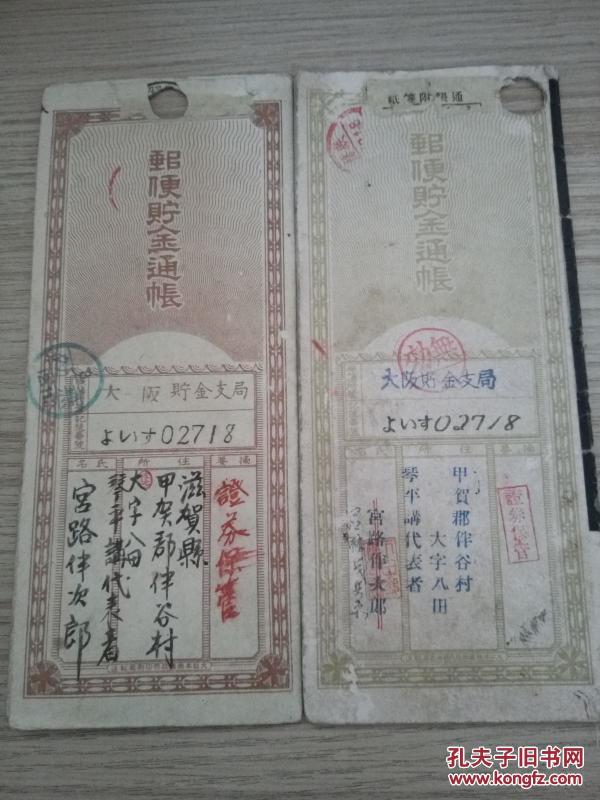 郵便貯金通帳
大阪貯金支局
よいす02718
摘要
住所
氏名
證券保管
滋賀縣
甲賀郡伴谷村
大字八田
琴平講代表者
宮路伴次郎
通帳附箋紙
郵便貯金通帳
無効
大阪貯金支局
よいす02718
摘要
住所
氏名
證券保管
甲賀郡伴谷村
大字八田
琴平講代表者
宮路伴次郎
孔夫子旧书网
www.kongfz.com